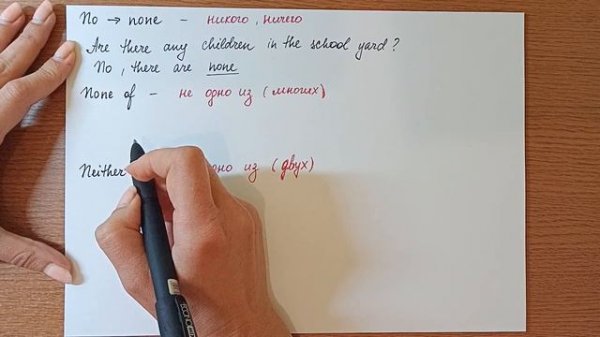 No → none - никого, ничего
Are there any children in the school yard?
No, there are none
None of - не одно из (многих)
Neither одно из (двух)